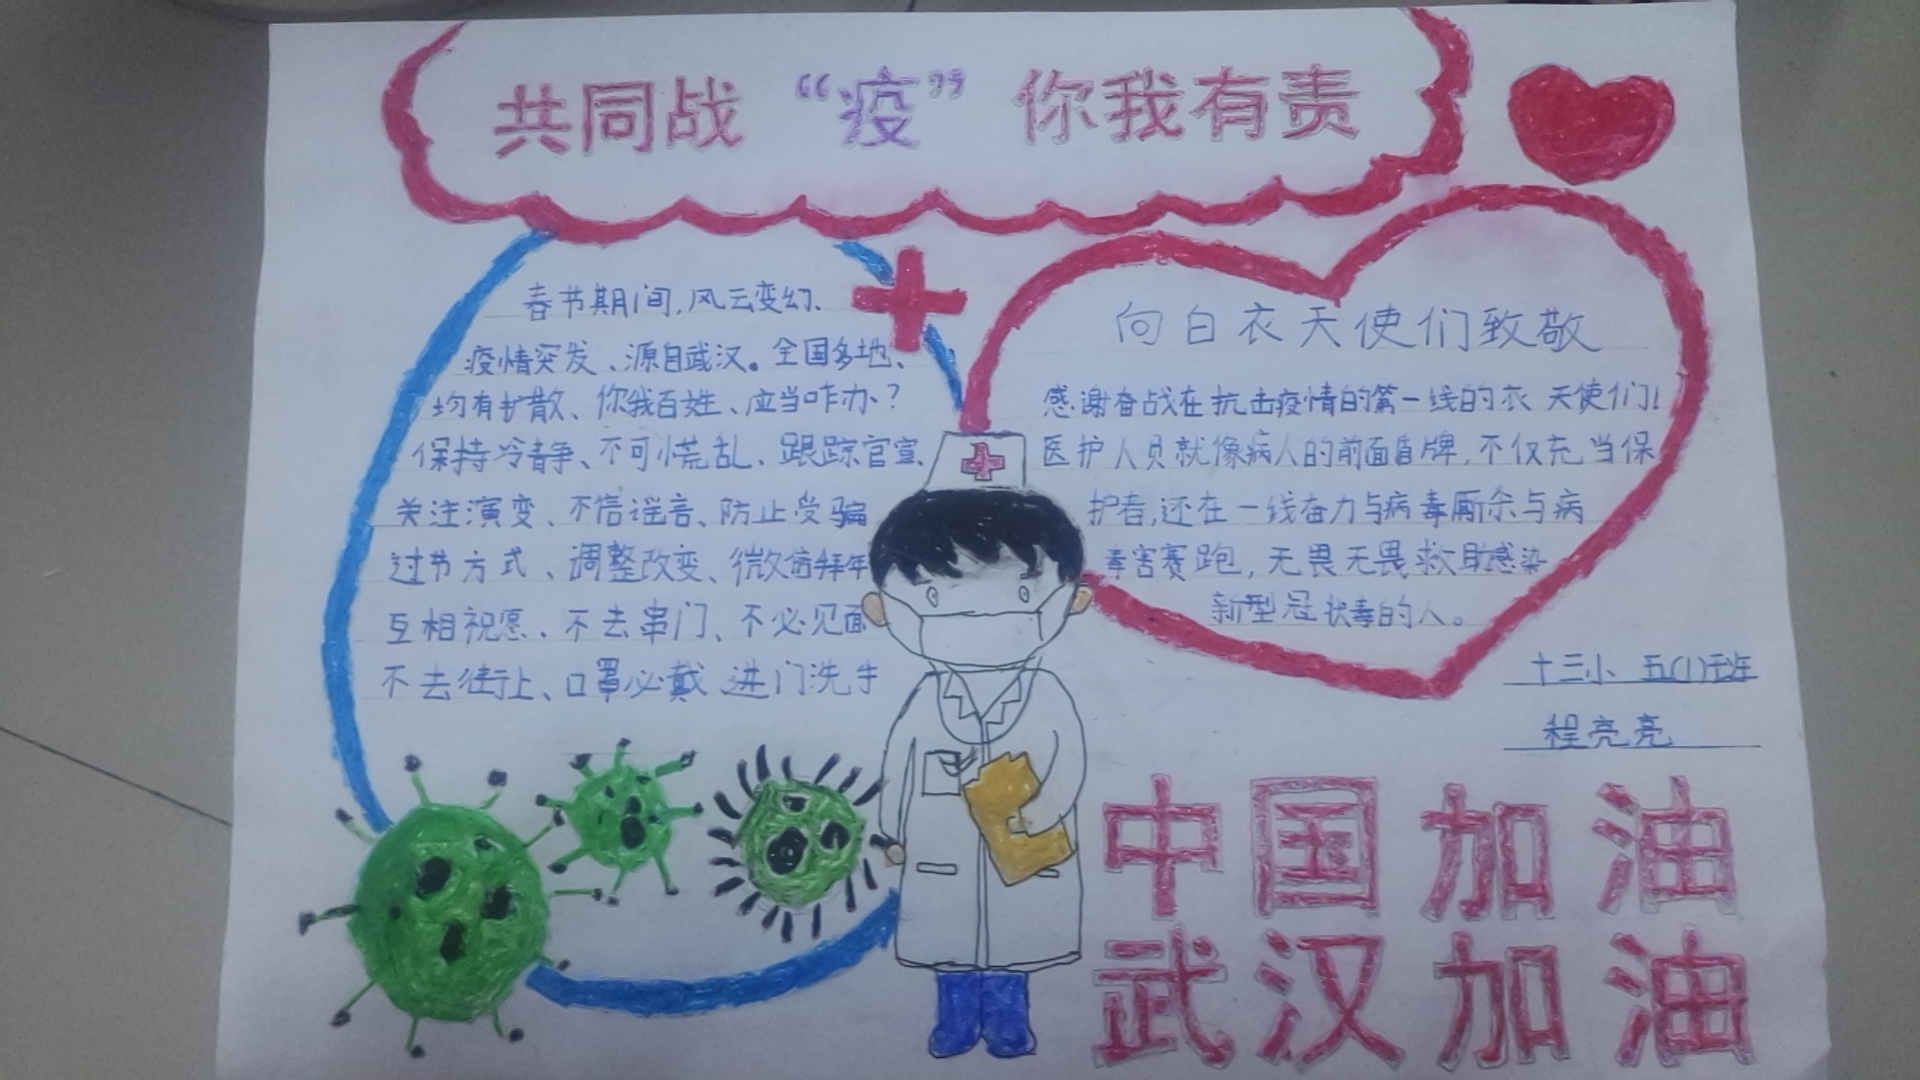 共同战“疫”你我有责
春节期间,风云变幻、
疫情突发、源自武汉。全国多地、
均有扩散、你我百姓、应当咋办?
保持冷静、不可慌乱、跟踪官宣、
关注演变、不信谣言、防止受骗
过节方式、调整改变、微信拜年
互相祝愿、不去串门、不必见面
不去街上、口罩必戴、进门洗手
向白衣天使们致敬
感谢奋战在抗击疫情的第一线的衣天使们!
医护人员就像病人的前面盾牌,不仅充当保
护者,还在一线奋力与病毒厮杀与病
毒害赛跑,无畏无畏救助感染
新型冠状毒的人。
十三小 五(1)班
程亮亮
中国加油
武汉加油